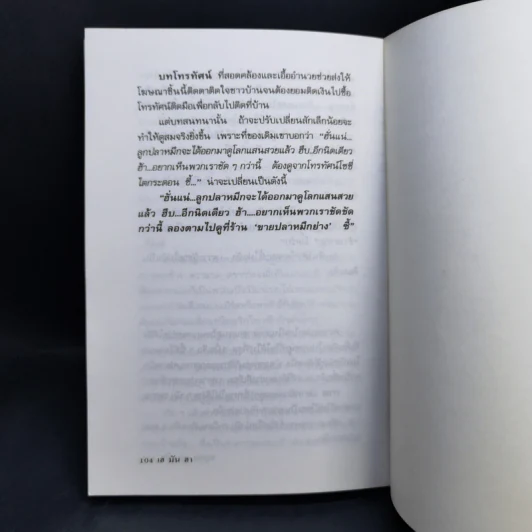 บทโทรทัศน์ ที่สอดคล้องและเอื้ออำนวยช่วยส่งให้
โฆษณาชิ้นนี้ติดตาติดใจชาวบ้านจนต้องยอมติดเงินไปซื้อ
โทรทัศน์ติดมือเพื่อกลับไปติดที่บ้าน
แต่บทสนทนานั้น ถ้าจะปรับเปลี่ยนสักเล็กน้อยจะ
ทำให้ดูสมจริงยิ่งขึ้น เพราะที่ของเดิมเขาบอกว่า "ฮั่นแน่...
ลูกปลาหมึกจะได้ออกมาดูโลกแสนสวยแล้ว ฮึบ...อีกนิดเดียว
ฮ้า...อยากเห็นพวกเราชัด ๆ กว่านี้ ต้องดูจากโทรทัศน์โซซี่
ไดกระตอน ซี้..." น่าจะเปลี่ยนเป็นดังนี้
"ฮั่นแน่...ลูกปลาหมึกจะได้ออกมาดูโลกแสนสวย
แล้ว ฮึบ...อีกนิดเดียว ฮ้า....อยากเห็นพวกเราชัดชัด
กว่านี้ ลองตามไปดูที่ร้าน 'ขายปลาหมึกย่าง' ซี้"
104 เฮ มัน ฮา